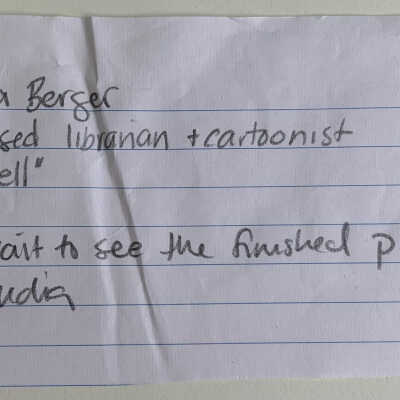 a Berger
sed librarian + cartoonist
ell"
ait to see the finished p
udia